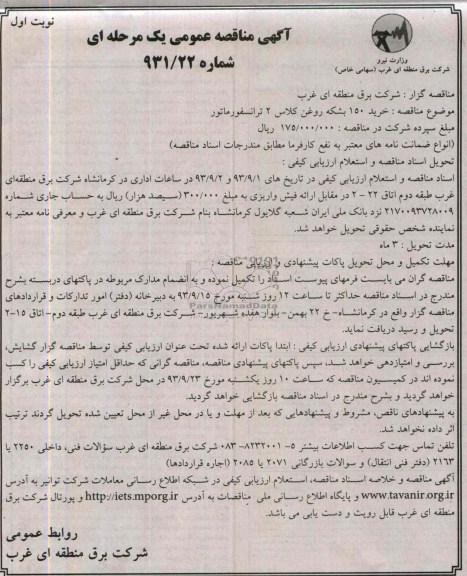 نوبت اول
آگهی مناقصه عمومی یک مرحله ای
شماره ۹۳۱/۲۲
وزارت نیرو
شرکت برق منطقه ای غرب (سهامی خاص)
مناقصه گزار : شرکت برق منطقه ای غرب
موضوع مناقصه : خرید ۱۵۰ بشکه روغن کلاس ۲ ترانسفورماتور
مبلغ سپرده شرکت در مناقصه : ۱۷۵/۰۰۰/۰۰۰ ریال
(انواع ضمانت نامه های معتبر به نفع کارفرما مطابق مندرجات اسناد مناقصه)
تحویل اسناد مناقصه و استعلام ارزیابی کیفی :
اسناد مناقصه و استعلام ارزیابی کیفی در تاریخ های ۹۳/۹/۱ و ۹۳/۹/۲ در ساعات اداری در کرمانشاه شرکت برق منطقه‌ای
غرب طبقه دوم اتاق ۲۲ – ۲ در مقابل ارائه فیش واریزی به مبلغ ۳۰۰/۰۰۰ (سیصد هزار) ریال به حساب جاری شماره
۲۱۷۰۰۹۳۷۲۸۰۰۹ نزد بانک ملی ایران شعبه گلایول کرمانشاه بنام شرکت برق منطقه ای غرب و معرفی نامه معتبر به
نماینده شخص حقوقی تحویل خواهد شد.
مدت تحویل : ۳ ماه
مهلت تکمیل و محل تحویل پاکات پیشنهادی و ارزیابی مناقصه :
مناقصه گران می بایست فرمهای پیوست اسناد را تکمیل نموده و به انضمام مدارک مربوطه در پاکتهای دربسته بشرح
مندرج در اسناد مناقصه حداکثر تا ساعت ۱۲ روز شنبه مورخ ۹۳/۹/۱۵ به دبیرخانه (دفتر) امور تدارکات و قراردادهای
مناقصه گزار واقع در کرمانشاه- خ ۲۲ بهمن- بلوار هفده شهریور- شرکت برق منطقه ای غرب طبقه دوم- اتاق ۱۵-۲
تحویل و رسید دریافت نماید.
بازگشایی پاکتهای پیشنهادی ارزیابی کیفی : ابتدا پاکات ارائه شده تحت عنوان ارزیابی کیفی توسط مناقصه گزار گشایش،
بررسی و امتیازدهی خواهد شد، سپس پاکتهای پیشنهادی مناقصه، مناقصه گرانی که حداقل امتیاز ارزیابی کیفی را کسب
نموده اند در کمیسیون مناقصه که ساعت ۱۰ روز یکشنبه مورخ ۹۳/۹/۲۳ در محل شرکت برق منطقه ای غرب برگزار
خواهد گردید و بشرح مندرج در اسناد مناقصه بازگشایی خواهد گردید.
به پیشنهادهای ناقص، مشروط و پیشنهادهایی که بعد از مهلت و یا در محل غیر از محل تعیین شده تحویل گردند ترتیب
اثر داده نخواهد شد.
تلفن تماس جهت کسب اطلاعات بیشتر ۵- ۸۲۳۲۰۰۱- ۰۸۳ شرکت برق منطقه ای غرب سؤالات فنی، داخلی ۲۲۵۰ یا
۲۱۶۳ (دفتر فنی انتقال) و سوالات بازرگانی ۲۰۷۱ یا ۲۰۸۵ (اجاره قراردادها)
آگهی مناقصه و خلاصه اسناد مناقصه، استعلام ارزیابی کیفی در شبکه اطلاع رسانی معاملات شرکت توانیر به آدرس
www.tavanir.org.ir و پایگاه اطلاع رسانی ملی مناقصات به آدرس http://iets.mporg.ir و پورتال شرکت برق
منطقه ای غرب قابل رویت و دست یابی می باشد.
روابط عمومی
شرکت برق منطقه ای غرب